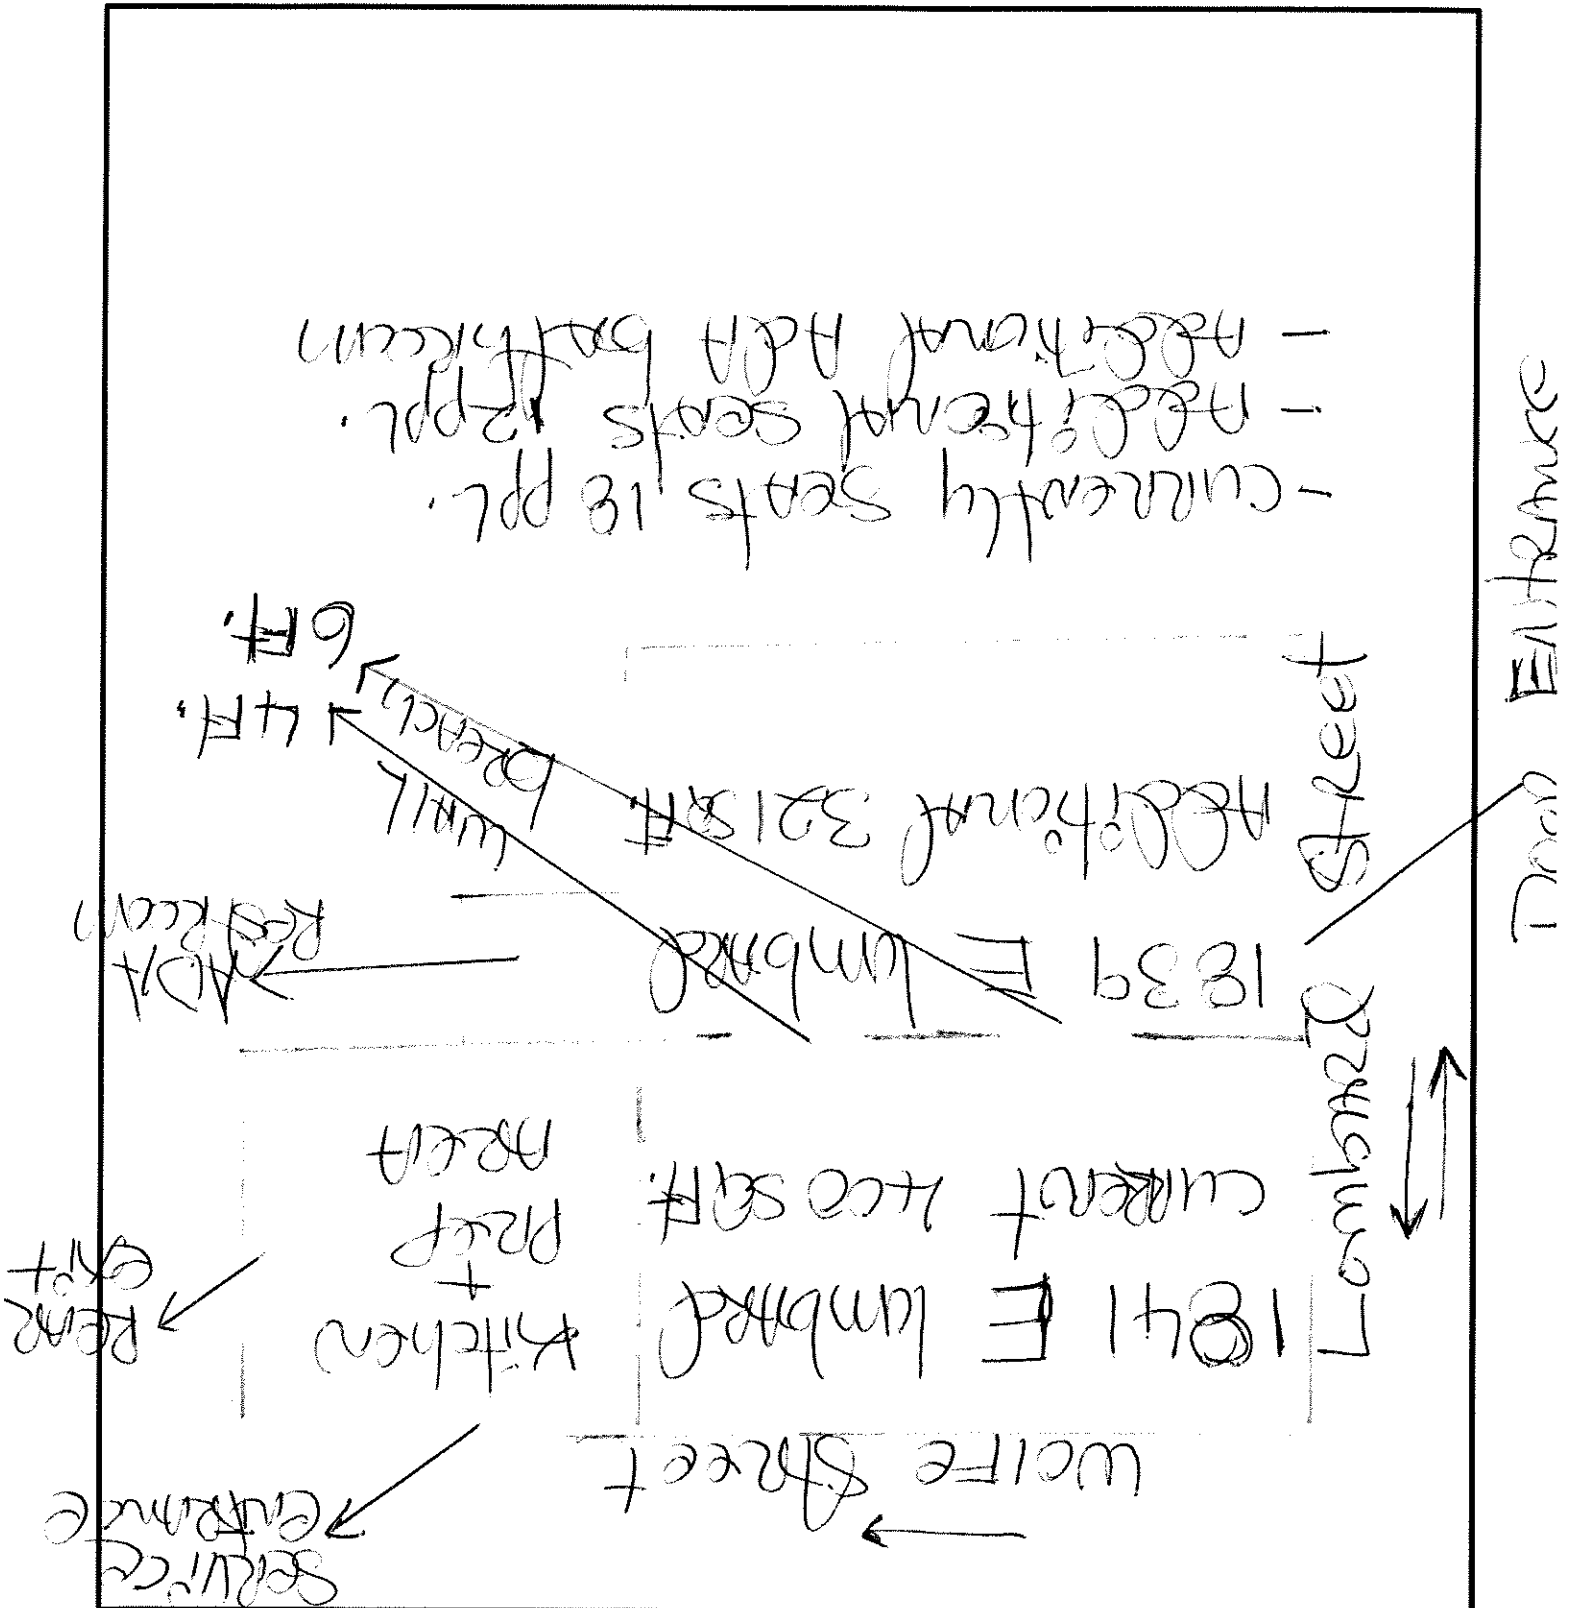 Service
entrance
Wolfe Street
1841 E Lombard
current 400 SQ.Ft.
Kitchen
+
Prep
Area
Rear
exit
Lombard Street
1839 E Lombard
Additional 321 SQ.Ft.
ADA
Restroom
Wall
4 Ft.
breach
6 Ft.
Door Entrance
- Currently seats 18 ppl.
- Additional seats 12 ppl.
- Additional ADA bathroom